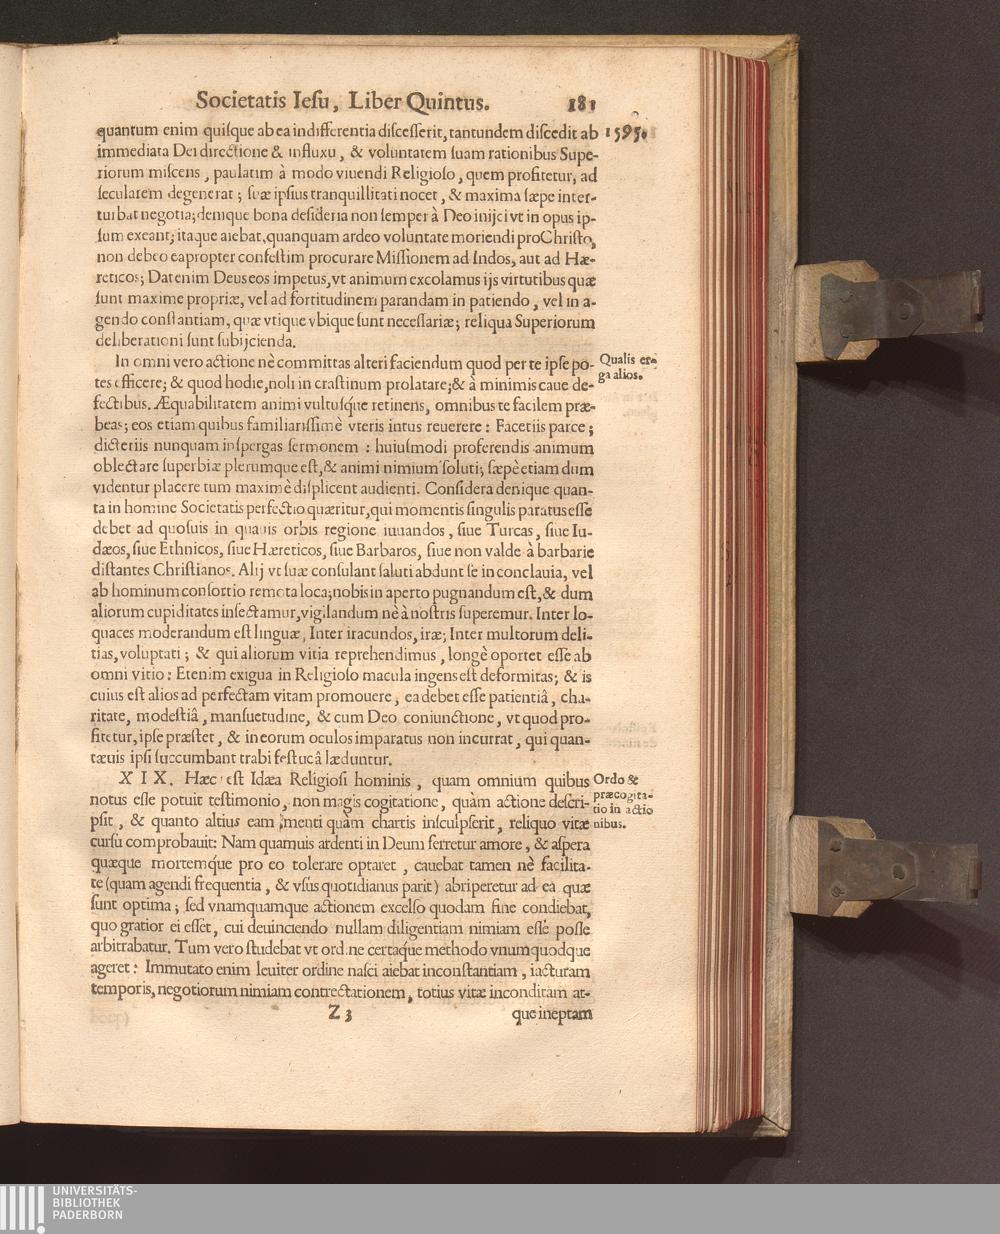 Societatis Iesu, Liber Quintus. 181
quantum enim quisque ab ea indifferentia discesserit, tantundem discedit ab 1595.
immediata Dei directione & influxu, & voluntatem suam rationibus Supe-
riorum miscens, paulatim à modo viuendi Religioso, quem profitetur, ad
secularem degenerat; suæ ipsius tranquillitati nocet, & maxima sæpe inter-
turbat negotia; denique bona desideria non semper à Deo inijci vt in opus ip-
sum exeant; itaque aiebat, quanquam ardeo voluntate moriendi pro Christo,
non debeo eapropter confestim procurare Missionem ad Indos, aut ad Hæ-
reticos; Dat enim Deus eos impetus, vt animum excolamus ijs virtutibus quæ
sunt maxime propriæ, vel ad fortitudinem parandam in patiendo, vel in a-
gendo constantiam, quæ vtique vbique sunt necessariæ; reliqua Superiorum
deliberationi sunt subijcienda.
In omni vero actione nè committas alteri faciendum quod per te ipse po- Qualis er-
tes efficere; & quod hodie, noli in crastinum prolatare; & à minimis caue de- ga alios.
fectibus. Æquabilitatem animi vultusq́ue retinens, omnibus te facilem præ-
beas; eos etiam quibus familiarissimè vteris intus reuerere: Facetiis parce;
dicteriis nunquam inspergas sermonem: huiusmodi proferendis animum
oblectare superbiæ plerumque est, & animi nimium soluti; sæpè etiam dum
videntur placere tum maximè displicent audienti. Considera denique quan-
ta in homine Societatis perfectio quæritur, qui momentis singulis paratus esse
debet ad quosuis in quauis orbis regione iuuandos, siue Turcas, siue Iu-
dæos, siue Ethnicos, siue Hæreticos, siue Barbaros, siue non valde à barbarie
distantes Christianos. Alij vt suæ consulant saluti abdunt se in conclauia, vel
ab hominum consortio remota loca; nobis in aperto pugnandum est, & dum
aliorum cupiditates insectamur, vigilandum nè à nostris superemur. Inter lo-
quaces moderandum est linguæ, Inter iracundos, iræ; Inter multorum deli-
tias, voluptati; & qui aliorum vitia reprehendimus, longè oportet esse ab
omni vitio: Etenim exigua in Religioso macula ingens est deformitas; & is
cuius est alios ad perfectam vitam promouere, ea debet esse patientiâ, cha-
ritate, modestiâ, mansuetudine, & cum Deo coniunctione, vt quod pro-
fitetur, ipse præstet, & in eorum oculos imparatus non incurrat, qui quan-
tæuis ipsi succumbant trabi festucâ læduntur.
XIX. Hæc est Idæa Religiosi hominis, quam omnium quibus Ordo &
notus esse potuit testimonio, non magis cogitatione, quàm actione descri- præcogita-
psit, & quanto altius eam menti quàm chartis insculpserit, reliquo vitæ tio in actio
cursu comprobauit: Nam quamuis ardenti in Deum ferretur amore, & aspera nibus.
quæque mortemq́ue pro eo tolerare optaret, cauebat tamen nè facilita-
te (quam agendi frequentia, & vsus quotidianus parit) abriperetur ad ea quæ
sunt optima; sed vnamquamque actionem excelso quodam fine condiebat,
quo gratior ei esset, cui deuinciendo nullam diligentiam nimiam esse posse
arbitrabatur. Tum vero studebat vt ordine certaq́ue methodo vnumquodque
ageret: Immutato enim leuiter ordine nasci aiebat inconstantiam, iacturam
temporis, negotiorum nimiam contrectationem, totius vitæ inconditam at-
Z 3 que ineptam
UNIVERSITÄTS-
BIBLIOTHEK
PADERBORN